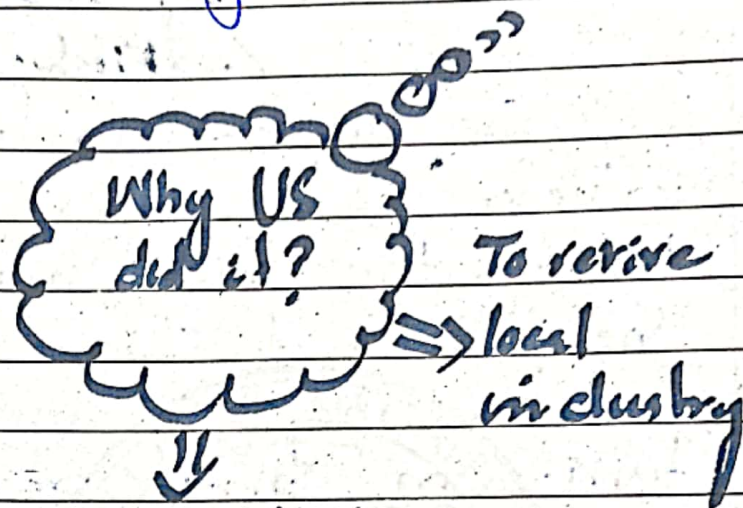 Why US
did it?
To revive
local
industry